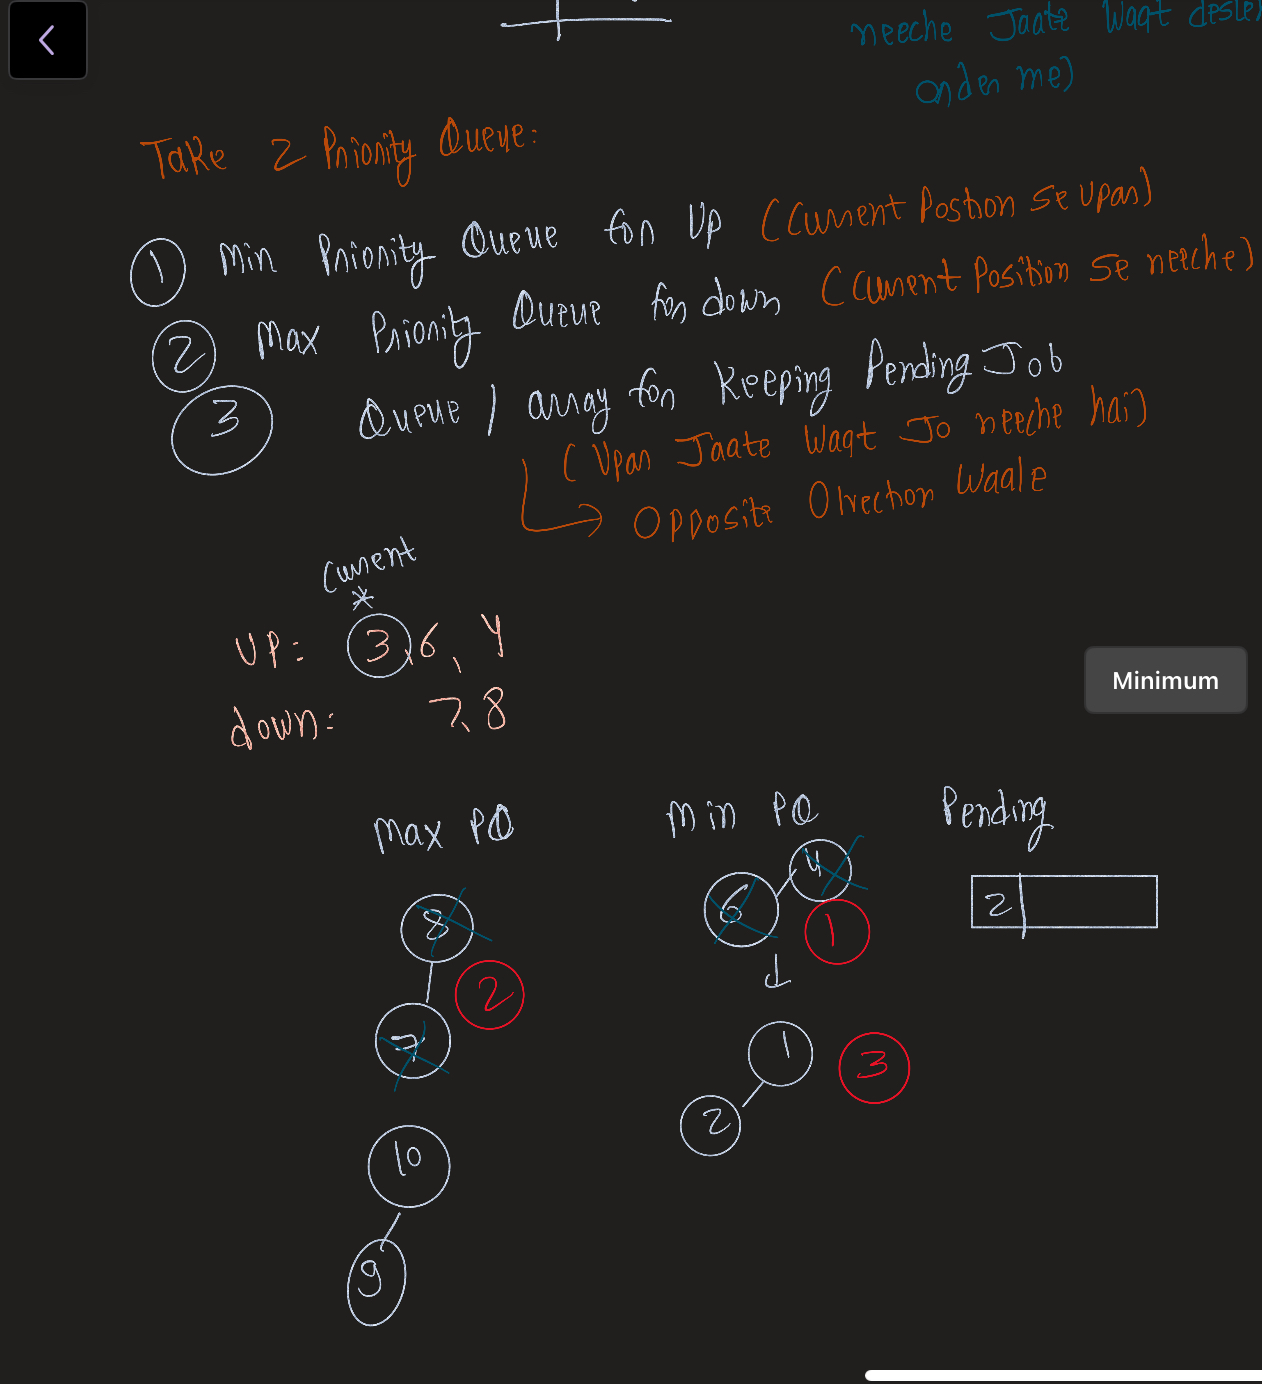 neeche Jaate Waqt
order me)
Take 2 Priority Queue:
1 Min Priority Queue for Up (Current Position se upar)
2 Max Priority Queue for down (Current Position se neeche)
3 Queue / array for Keeping Pending Job
(Upar Jaate Waqt Jo neeche hai)
Opposite Direction Waale
Current
*
UP: 3, 6, 4
down: 7, 8
Minimum
Max PQ Min PQ Pending
8 6 4 2
2 1
7 1 3
10 2
9